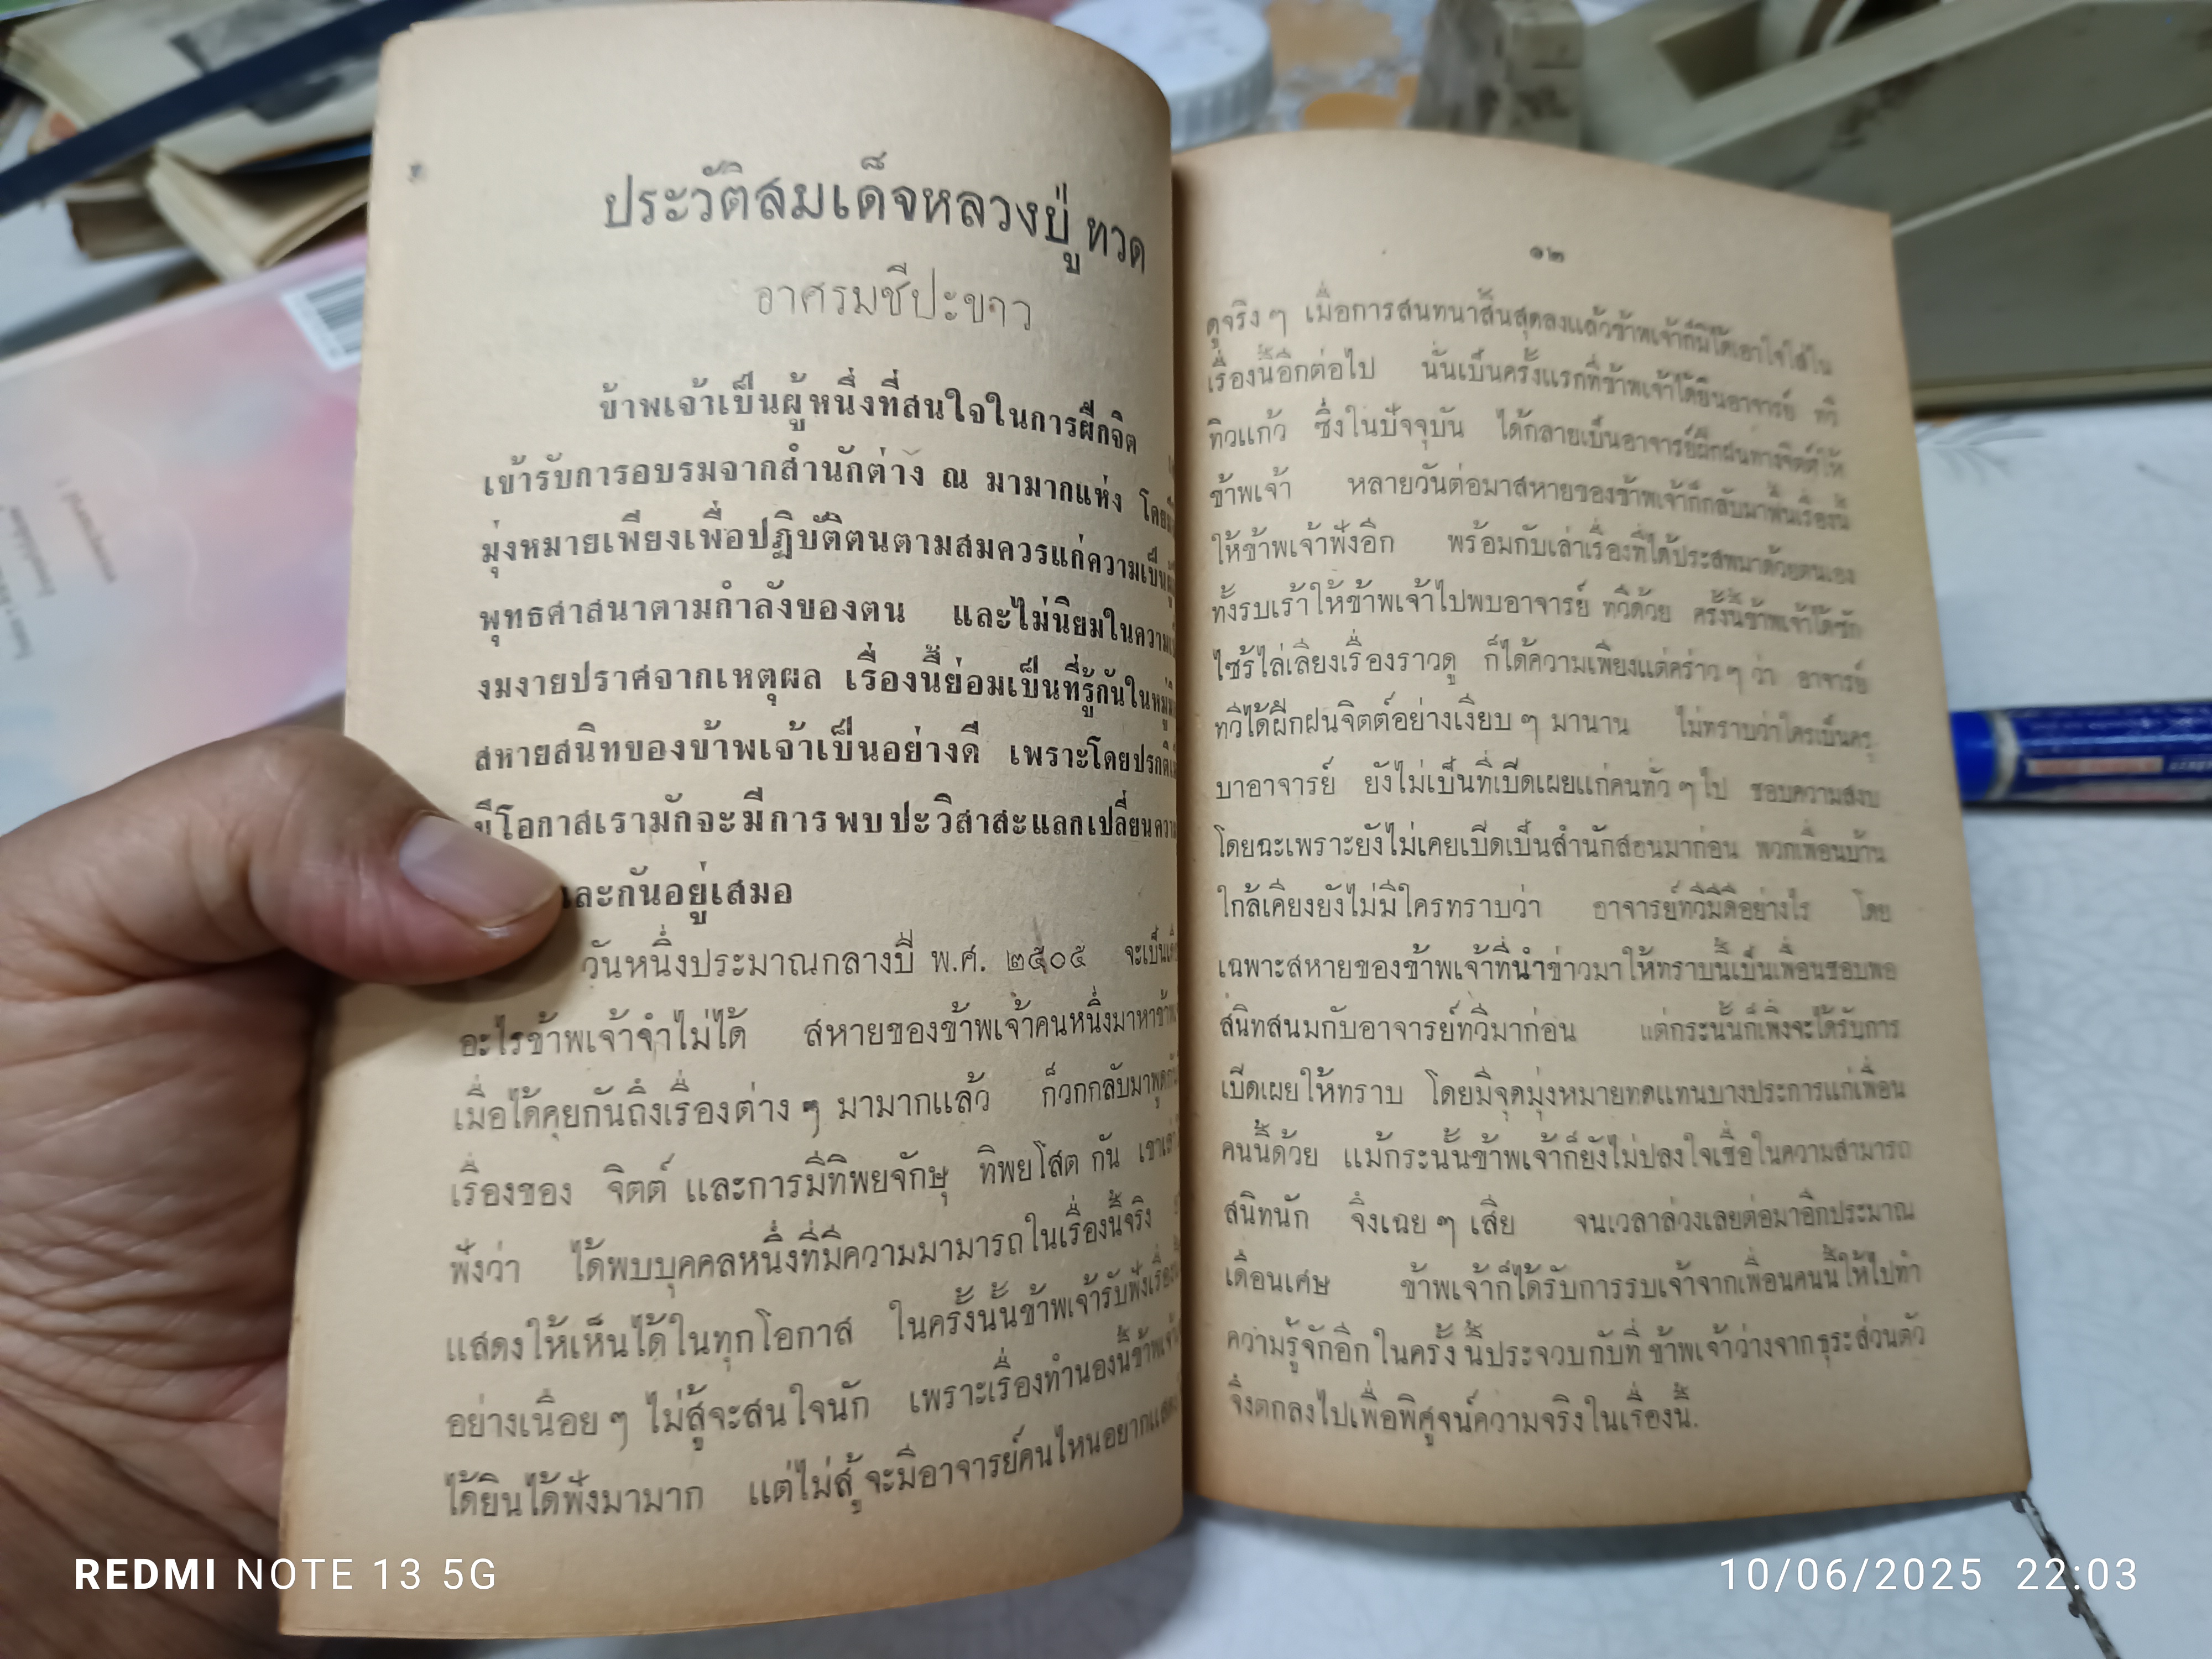 ประวัติสมเด็จหลวงปู่ทวด
อาศรมชีปะขาว
ข้าพเจ้าเป็นผู้หนึ่งที่สนใจในการฝึกจิต
เข้ารับการอบรมจากสำนักต่าง ณ มามากแห่ง
มุ่งหมายเพียงเพื่อปฏิบัติตนตามสมควรแก่ความเป็น
พุทธศาสนาตามกำลังของตน และไม่นิยมในความ
งมงายปราศจากเหตุผล เรื่องนี้ย่อมเป็นที่รู้กันในหมู่
สหายสนิทของข้าพเจ้าเป็นอย่างดี เพราะโดยปรกติ
มีโอกาสเรามักจะมีการพบปะวิสาสะแลกเปลี่ยน
และกันอยู่เสมอ
วันหนึ่งประมาณกลางปี พ.ศ. ๒๕๐๕ จะเป็น
อะไรข้าพเจ้าจำไม่ได้ สหายของข้าพเจ้าคนหนึ่งมาหา
เมื่อได้คุยกันถึงเรื่องต่าง ๆ มามากแล้ว ก็วกกลับมาพูด
เรื่องของ จิตต์ และการมีทิพยจักษุ ทิพยโสต กัน
ฟังว่า ได้พบบุคคลหนึ่งที่มีความมามารถในเรื่องนี้จริง
แสดงให้เห็นได้ในทุกโอกาส ในครั้งนั้นข้าพเจ้ารับฟัง
อย่างเนือย ๆ ไม่สู้จะสนใจนัก เพราะเรื่องทำนองนี้
ได้ยินได้ฟังมามาก แต่ไม่สู้จะมีอาจารย์คนไหนอยากแสดง
๑๒
ดูจริง ๆ เมื่อการสนทนาสิ้นสุดลงแล้วข้าพเจ้าก็มิได้เอาใจใส่ใน
เรื่องนี้อีกต่อไป นั่นเป็นครั้งแรกที่ข้าพเจ้าได้ยินอาจารย์ ทวี
ทิวแก้ว ซึ่งในปัจจุบัน ได้กลายเป็นอาจารย์ฝึกฝนทางจิตต์ให้
ข้าพเจ้า หลายวันต่อมาสหายของข้าพเจ้าก็กลับมาฟื้นเรื่องนี้
ให้ข้าพเจ้าฟังอีก พร้อมกับเล่าเรื่องที่ได้ประสพมาด้วยตนเอง
ทั้งรบเร้าให้ข้าพเจ้าไปพบอาจารย์ ทวีด้วย ครั้งนี้ข้าพเจ้าได้ซัก
ไซร้ไล่เลียงเรื่องราวดู ก็ได้ความเพียงแต่คร่าว ๆ ว่า อาจารย์
ทวีได้ฝึกฝนจิตต์อย่างเงียบ ๆ มานาน ไม่ทราบว่าใครเป็นครู
บาอาจารย์ ยังไม่เป็นที่เปิดเผยแก่คนทั่ว ๆ ไป ชอบความสงบ
โดยฉะเพราะยังไม่เคยเปิดเป็นสำนักสอนมาก่อน พวกเพื่อนบ้าน
ใกล้เคียงยังไม่มีใครทราบว่า อาจารย์ทวีมีดีอย่างไร โดย
เฉพาะสหายของข้าพเจ้าที่นำข่าวมาให้ทราบนี้เป็นเพื่อนชอบพอ
สนิทสนมกับอาจารย์ทวีมาก่อน แต่กระนั้นก็เพิ่งจะได้รับการ
เปิดเผยให้ทราบ โดยมีจุดมุ่งหมายทดแทนบางประการแก่เพื่อน
คนนี้ด้วย แม้กระนั้นข้าพเจ้าก็ยังไม่ปลงใจเชื่อในความสามารถ
สนิทนัก จึงเฉย ๆ เสีย จนเวลาล่วงเลยต่อมาอีกประมาณ
เดือนเศษ ข้าพเจ้าก็ได้รับการรบเจ้าจากเพื่อนคนนี้ให้ไปทำ
ความรู้จักอีก ในครั้งนี้ประจวบกับที่ข้าพเจ้าว่างจากธุระส่วนตัว
จึงตกลงไปเพื่อพิศูจน์ความจริงในเรื่องนี้.
REDMI NOTE 13 5G
10/06/2025 22:03